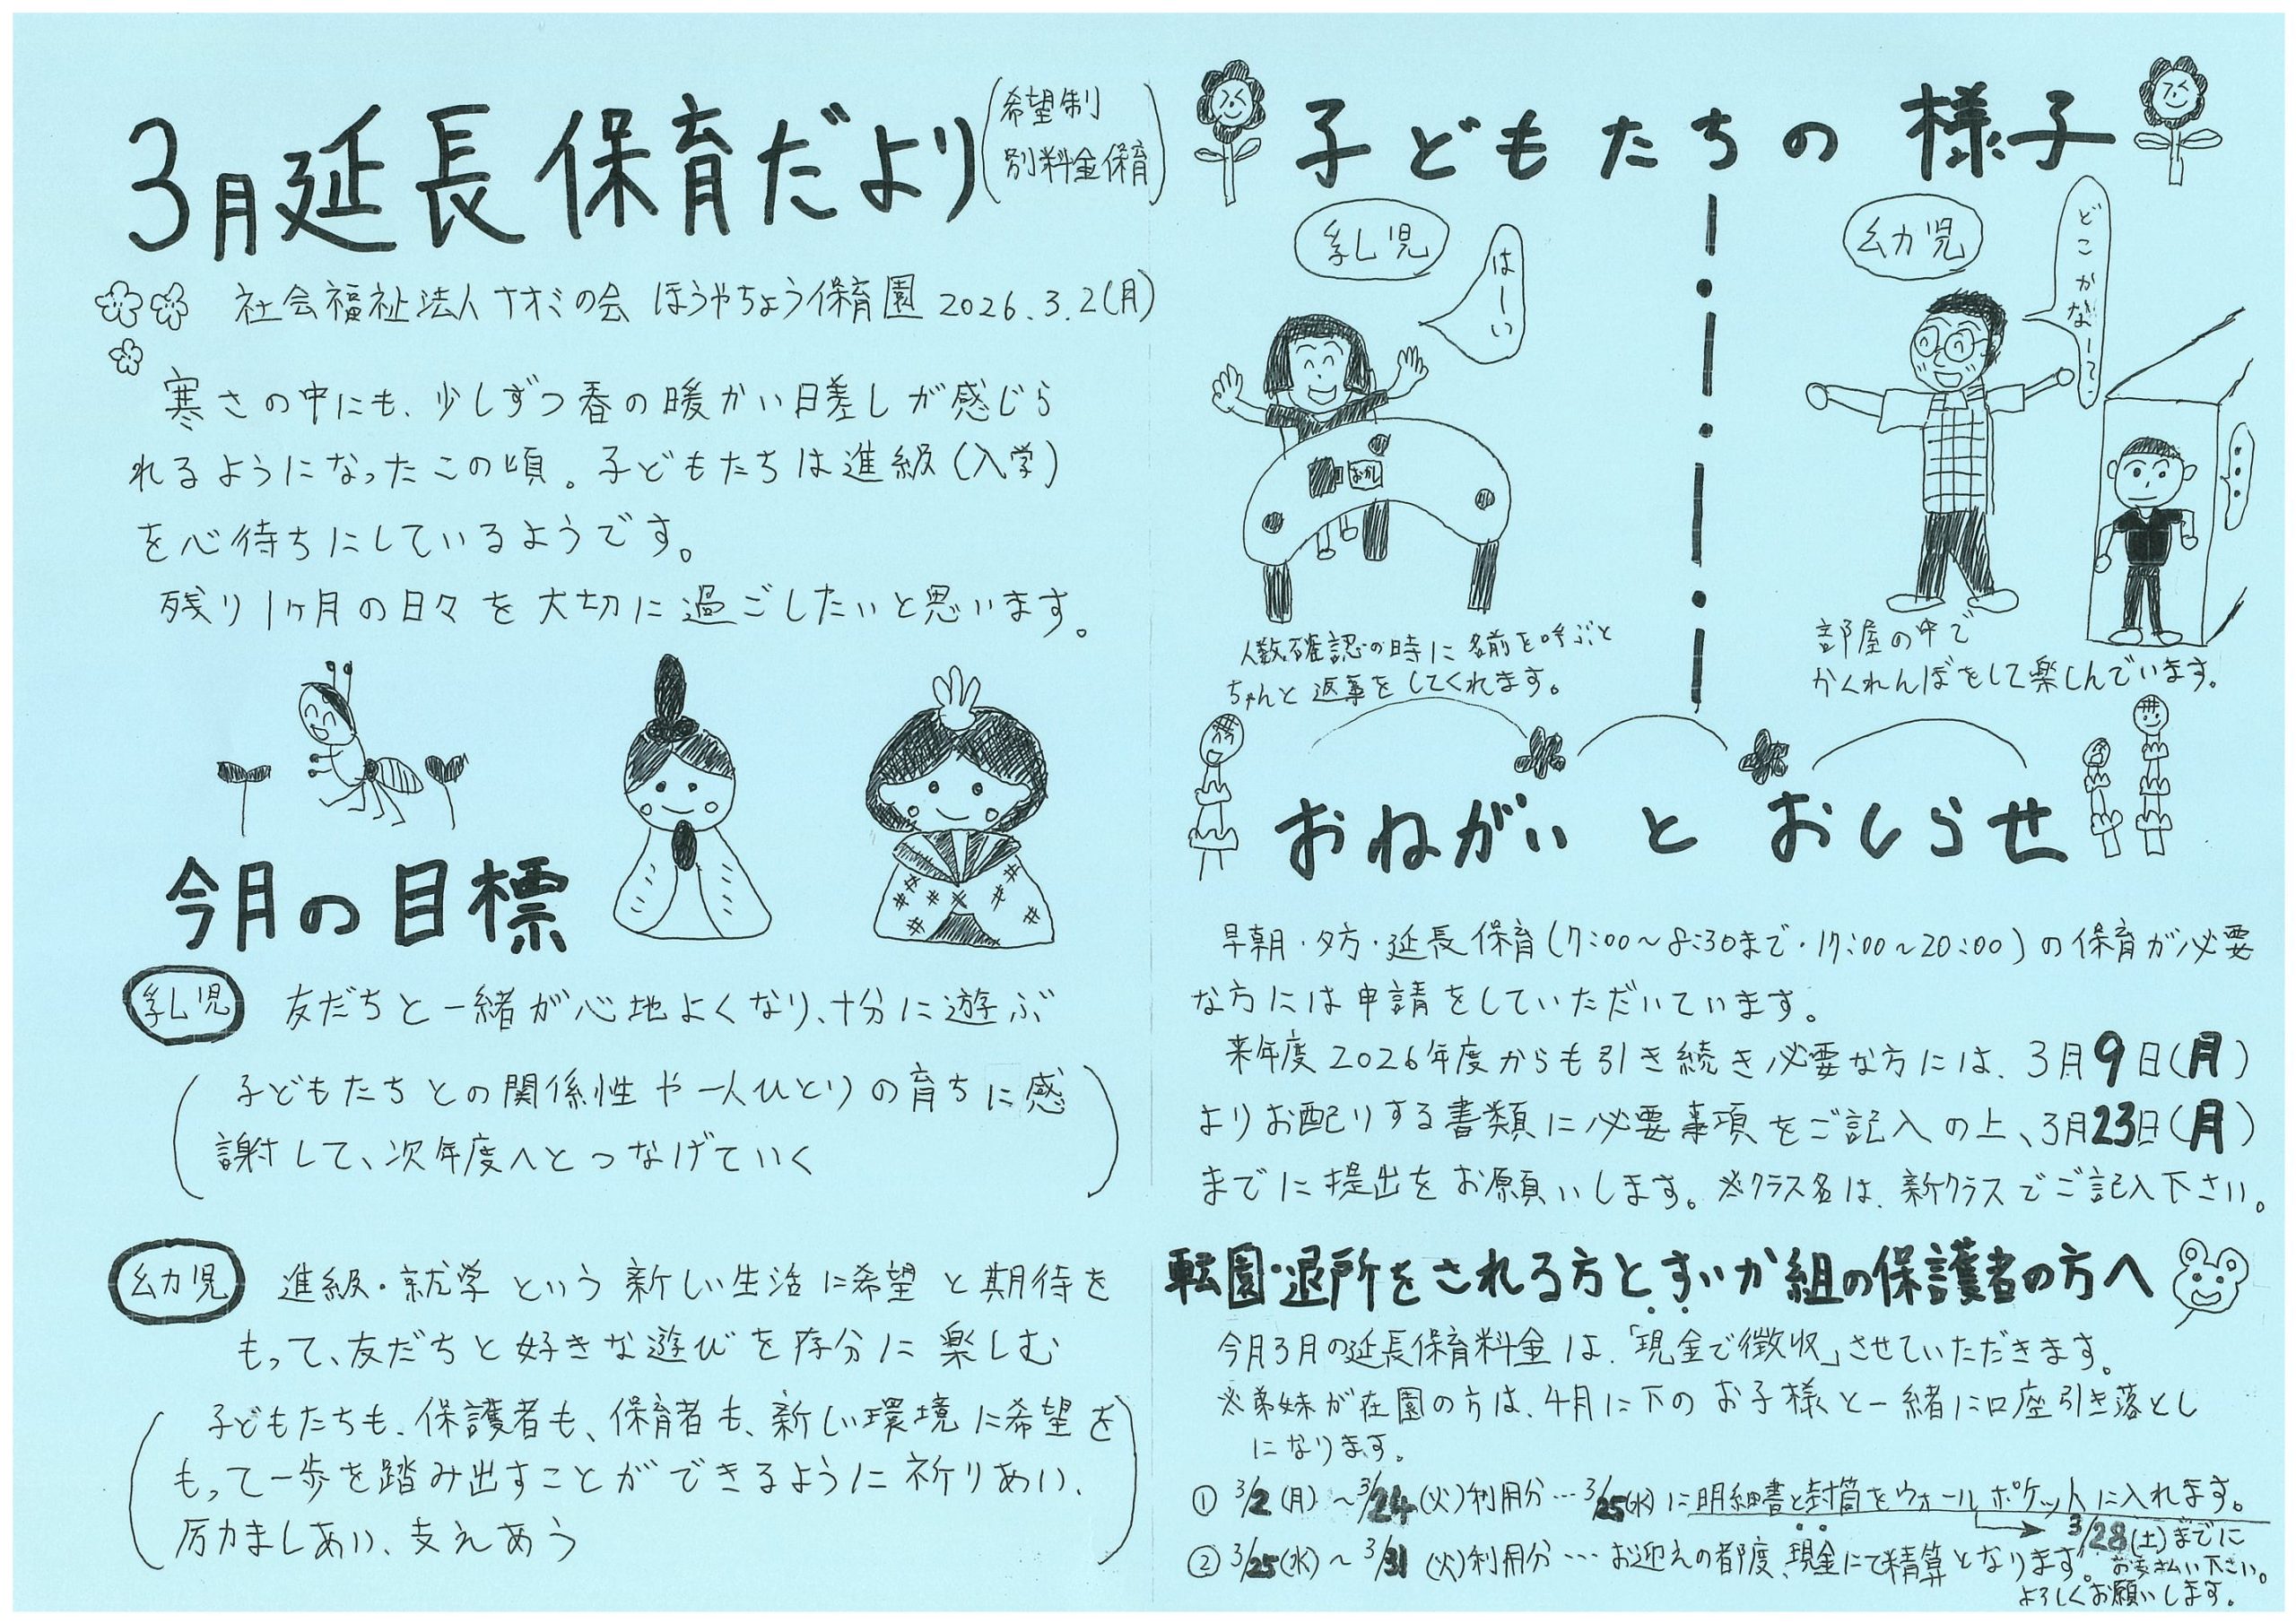 3月延長保育だより
(希望制
別料金保育)
社会福祉法人ナオミの会 ほうやちょう保育園 2026.3.2(月)
寒さの中にも、少しずつ春の暖かい日差しが感じら
れるようになったこの頃。子どもたちは進級(入学)
を心待ちにしているようです。
残り1ヶ月の日々を大切に過ごしたいと思います。
今月の目標
乳児 友だちと一緒が心地よくなり、十分に遊ぶ
(子どもたちとの関係性や一人ひとりの育ちに感
謝して、次年度へとつなげていく)
幼児 進級・就学という新しい生活に希望と期待を
もって、友だちと好きな遊びを存分に楽しむ
(子どもたちも、保護者も、保育者も、新しい環境に希望を
もって一歩を踏み出すことができるように祈りあい、
励ましあい、支えあう)
子どもたちの様子
乳児
はーい
おかし
人数確認の時に名前を呼ぶと
ちゃんと返事をしてくれます。
幼児
どこかなー?
・・・
部屋の中で
かくれんぼをして楽しんでいます。
おねがいとおしらせ
早朝・夕方・延長保育(7:00～8:30まで・17:00～20:00)の保育が必要
な方には申請をしていただいています。
来年度2026年度からも引き続き必要な方には、3月9日(月)
よりお配りする書類に必要事項をご記入の上、3月23日(月)
までに提出をお願いします。※クラス名は、新クラスでご記入下さい。
転園・退所をされる方とすいか組の保護者の方へ
今月3月の延長保育料金は、「現金で徴収」させていただきます。
※弟妹が在園の方は、4月に下のお子様と一緒に口座引き落とし
になります。
① 3/2(月)～3/24(火)利用分…3/25(水)に明細書と封筒をウォールポケットに入れます。
→3/28(土)までに
お支払い下さい。
② 3/25(水)～3/31(火)利用分…お迎えの都度、現金にて精算となります。
よろしくお願いします。